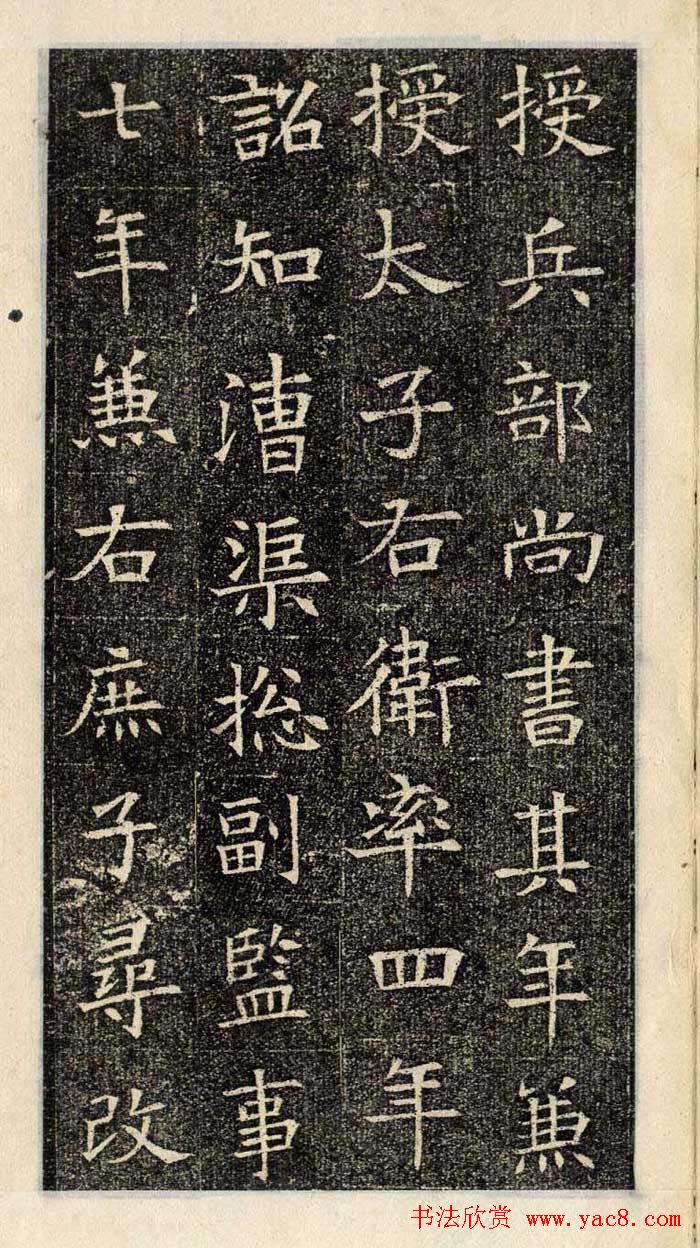 授兵部尚書其年兼
授太子右衛率四年
詔知漕渠捴副監事
七年兼右庶子尋改
书法欣赏 www.yac8.com